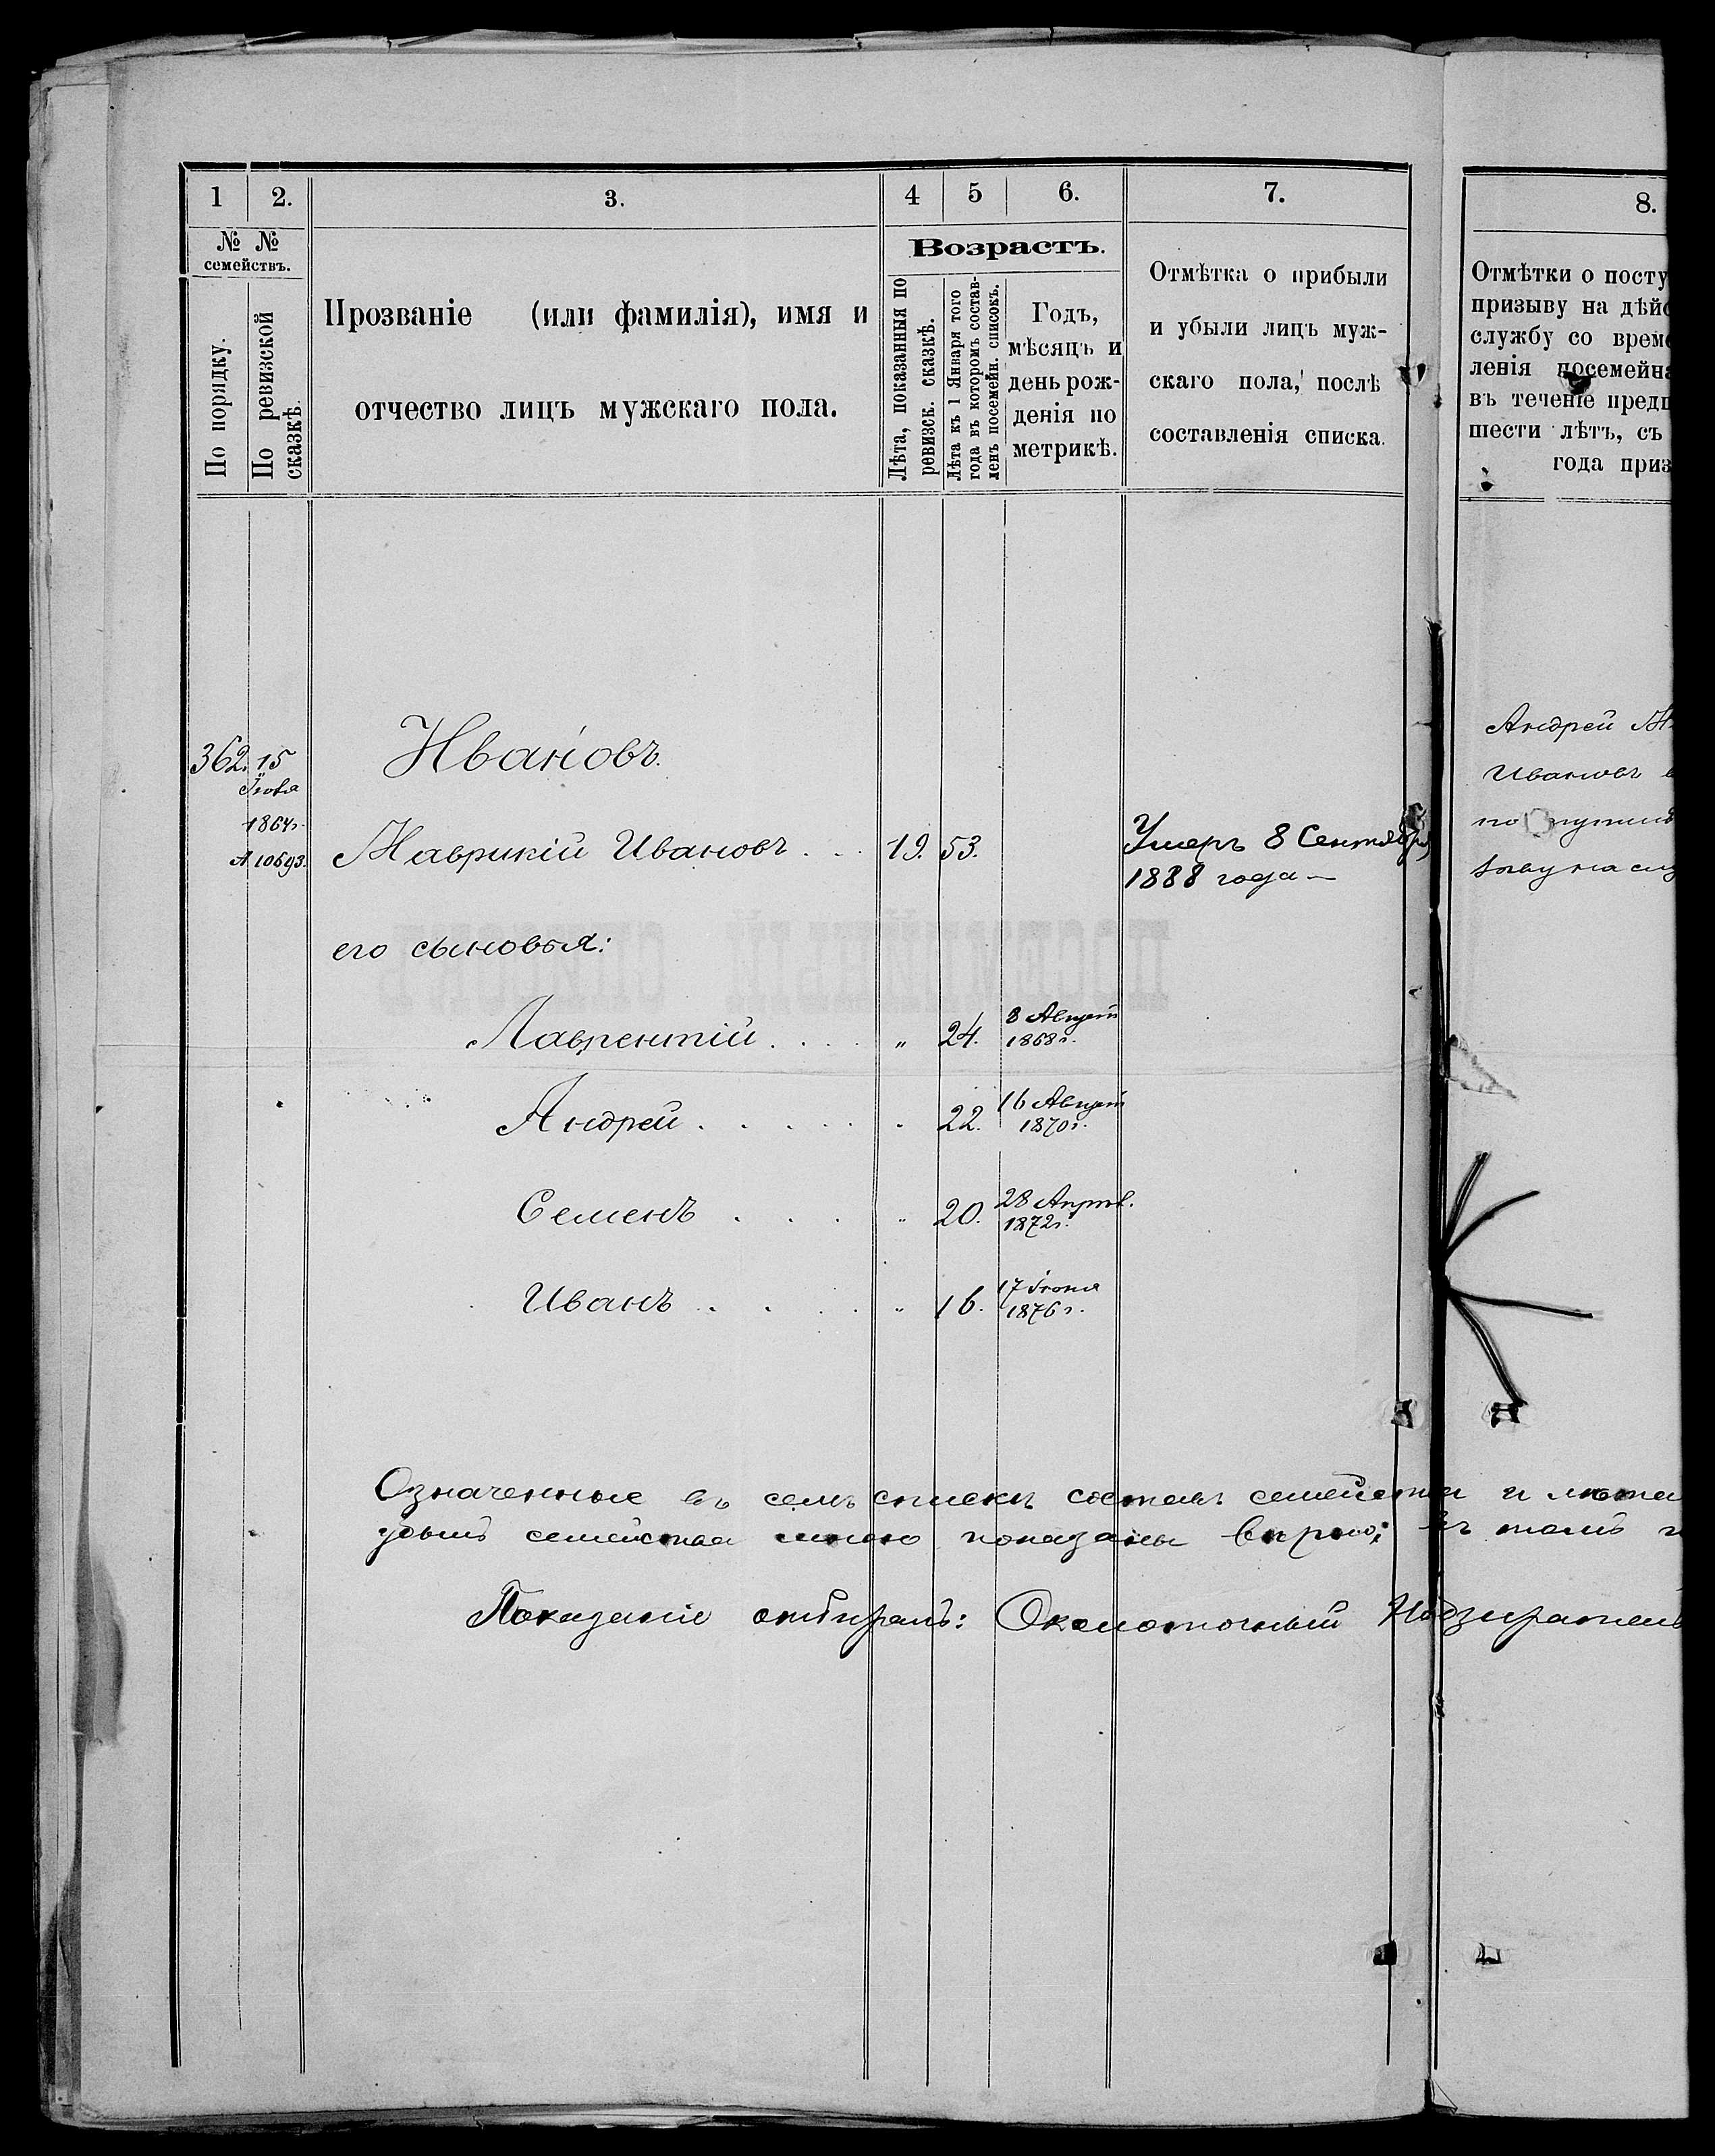 1 2. 3. 4 5 6. 7.
№ №
семействъ.
По порядку.
По ревизской
сказкѣ.
Прозваніе (или фамилія), имя и
отчество лицъ мужскаго пола.
Возрастъ.
Лѣта, показанныя по
ревизск. сказкѣ.
Лѣта къ 1 Января того
года въ которомъ состав-
ленъ посемейн. списокъ.
Годъ,
мѣсяцъ и
день рож-
денія по
метрикѣ.
Отмѣтка о прибыли
и убыли лицъ муж-
скаго пола, послѣ
составленія списка.
362. 15
1864г.
10693.
Ивановъ.
Маврикій Ивановъ . . . 19. 53.
Умеръ 8 Сентября
1888 года —
его сыновья:
Лаврентій . . . . „ 24. 8 Август
1868г.
Андрей . . . . . „ 22. 16 Август
1870г.
Семенъ . . . . „ 20. 28 Апрѣл.
1872г.
Иванъ . . . . „ 16. 17 Іюня
1876г.
Означенные въ семъ спискѣ составъ семейства и лѣта
семейства мною показаны вѣрно; въ томъ
Показаніе отбиралъ: Околоточный Надзиратель
8.
Отмѣтки о посту
призыву на дѣйс
службу со време
ленія посемейна
въ теченіе предп
шести лѣтъ, съ
года приз
Андрей М
Ивановъ